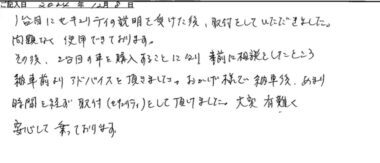 ご記入日 2024年12月8日
1台目にセキュリティの説明を受けた後、取付をしていただきました。
問題なく使用できております。
その後、2台目の車を購入することになり 事前に相談としたところ
納車前よりアドバイスを頂きました。おかげ様で納車後、あまり
時間を経ず 取付(セキュリティ)をして頂けました。大変 有難く
安心して乗っております。